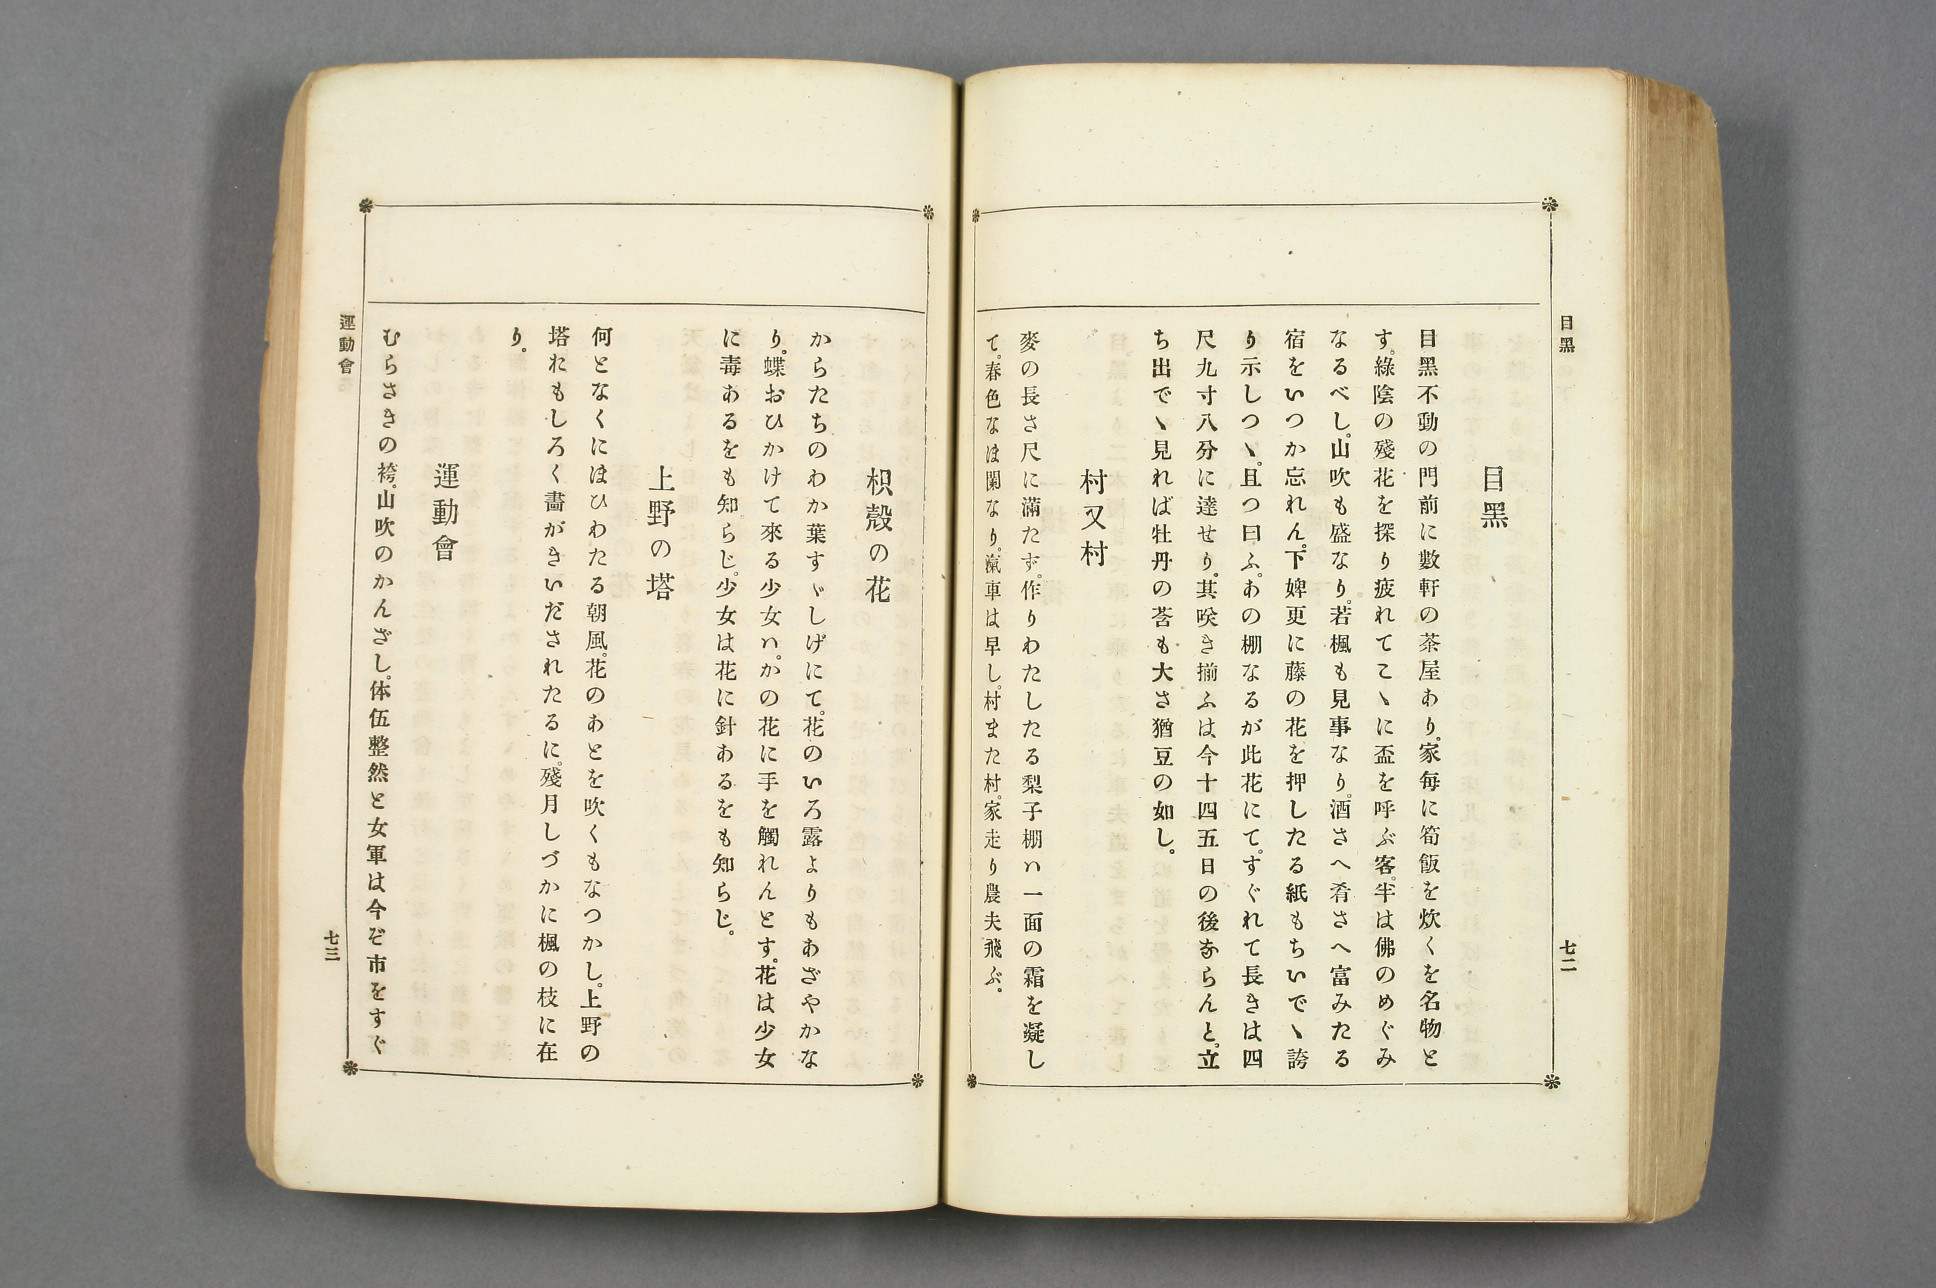 目黑
七二
目黑
目黑不動の門前に數軒の茶屋あり。家每に筍飯を炊くを名物と
す。綠陰の殘花を探り疲れてこゝに盃を呼ぶ客。半は佛のめぐみ
なるべし。山吹も盛なり。若楓も見事なり。酒さへ肴さへ富みたる
宿をいつか忘れん。下婢更に藤の花を押したる紙もちいでゝ誇
り示しつゝ。且つ曰ふ。あの棚なるが此花にて。すぐれて長きは四
尺九寸八分に達せり。其咲き揃ふは今十四五日の後ならんと。立
ち出でゝ見れば牡丹の莟も大さ猶豆の如し。
村又村
麥の長さ尺に滿たず。作りわたしたる梨子棚ハ一面の霜を凝し
て。春色なほ闌なり。滊車は早し。村また村。家走り農夫飛ぶ。
枳殼の花
からたちのわか葉すゞしげにて。花のいろ露よりもあざやかな
り。蝶おひかけて來る少女ハ。かの花に手を觸れんとす。花は少女
に毒あるをも知らじ。少女は花に針あるをも知らじ。
上野の塔
何となくにほひわたる朝風。花のあとを吹くもなつかし。上野の
塔れもしろく畵がきいだされたるに。殘月しづかに楓の枝に在
り。
運動會
むらさきの袴。山吹のかんざし。体伍整然と女軍は今ぞ市をすぐ
運動會
七三